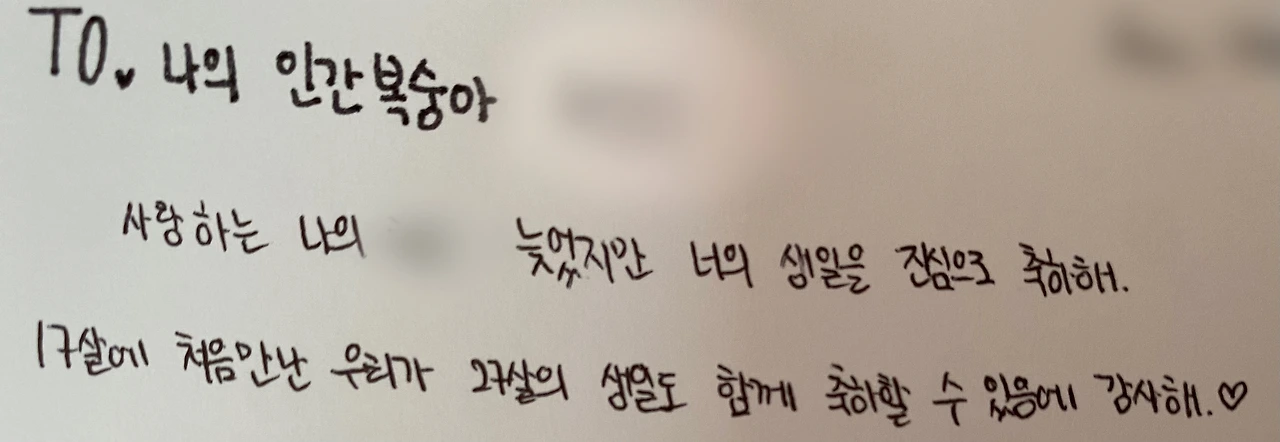 TO. 나의 인간복숭아
사랑하는 나의 늦었지만 너의 생일을 진심으로 축하해.
17살에 처음만난 우리가 27살의 생일도 함께 축하할 수 있음에 감사해.♡